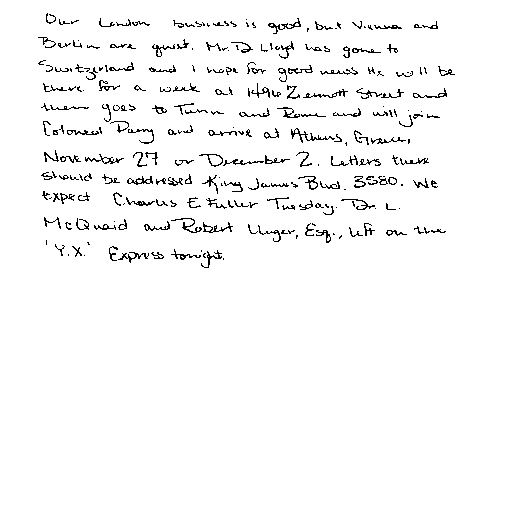 Our London business is good, but Vienna and
Berlin are quiet. Mr. D. Lloyd has gone to
Switzerland and I hope for good news. He will be
there for a week at 1496 Zermott Street and
then goes to Turin and Rome and will join
Colonel Parry and arrive at Athens, Greece,
November 27 or December 2. Letters there
should be addressed King James Blvd. 3580. We
expect Charles E Fuller Tuesday. Dr. L.
McQuaid and Robert Unger, Esq., left on the
'Y.X.' Express tonight.